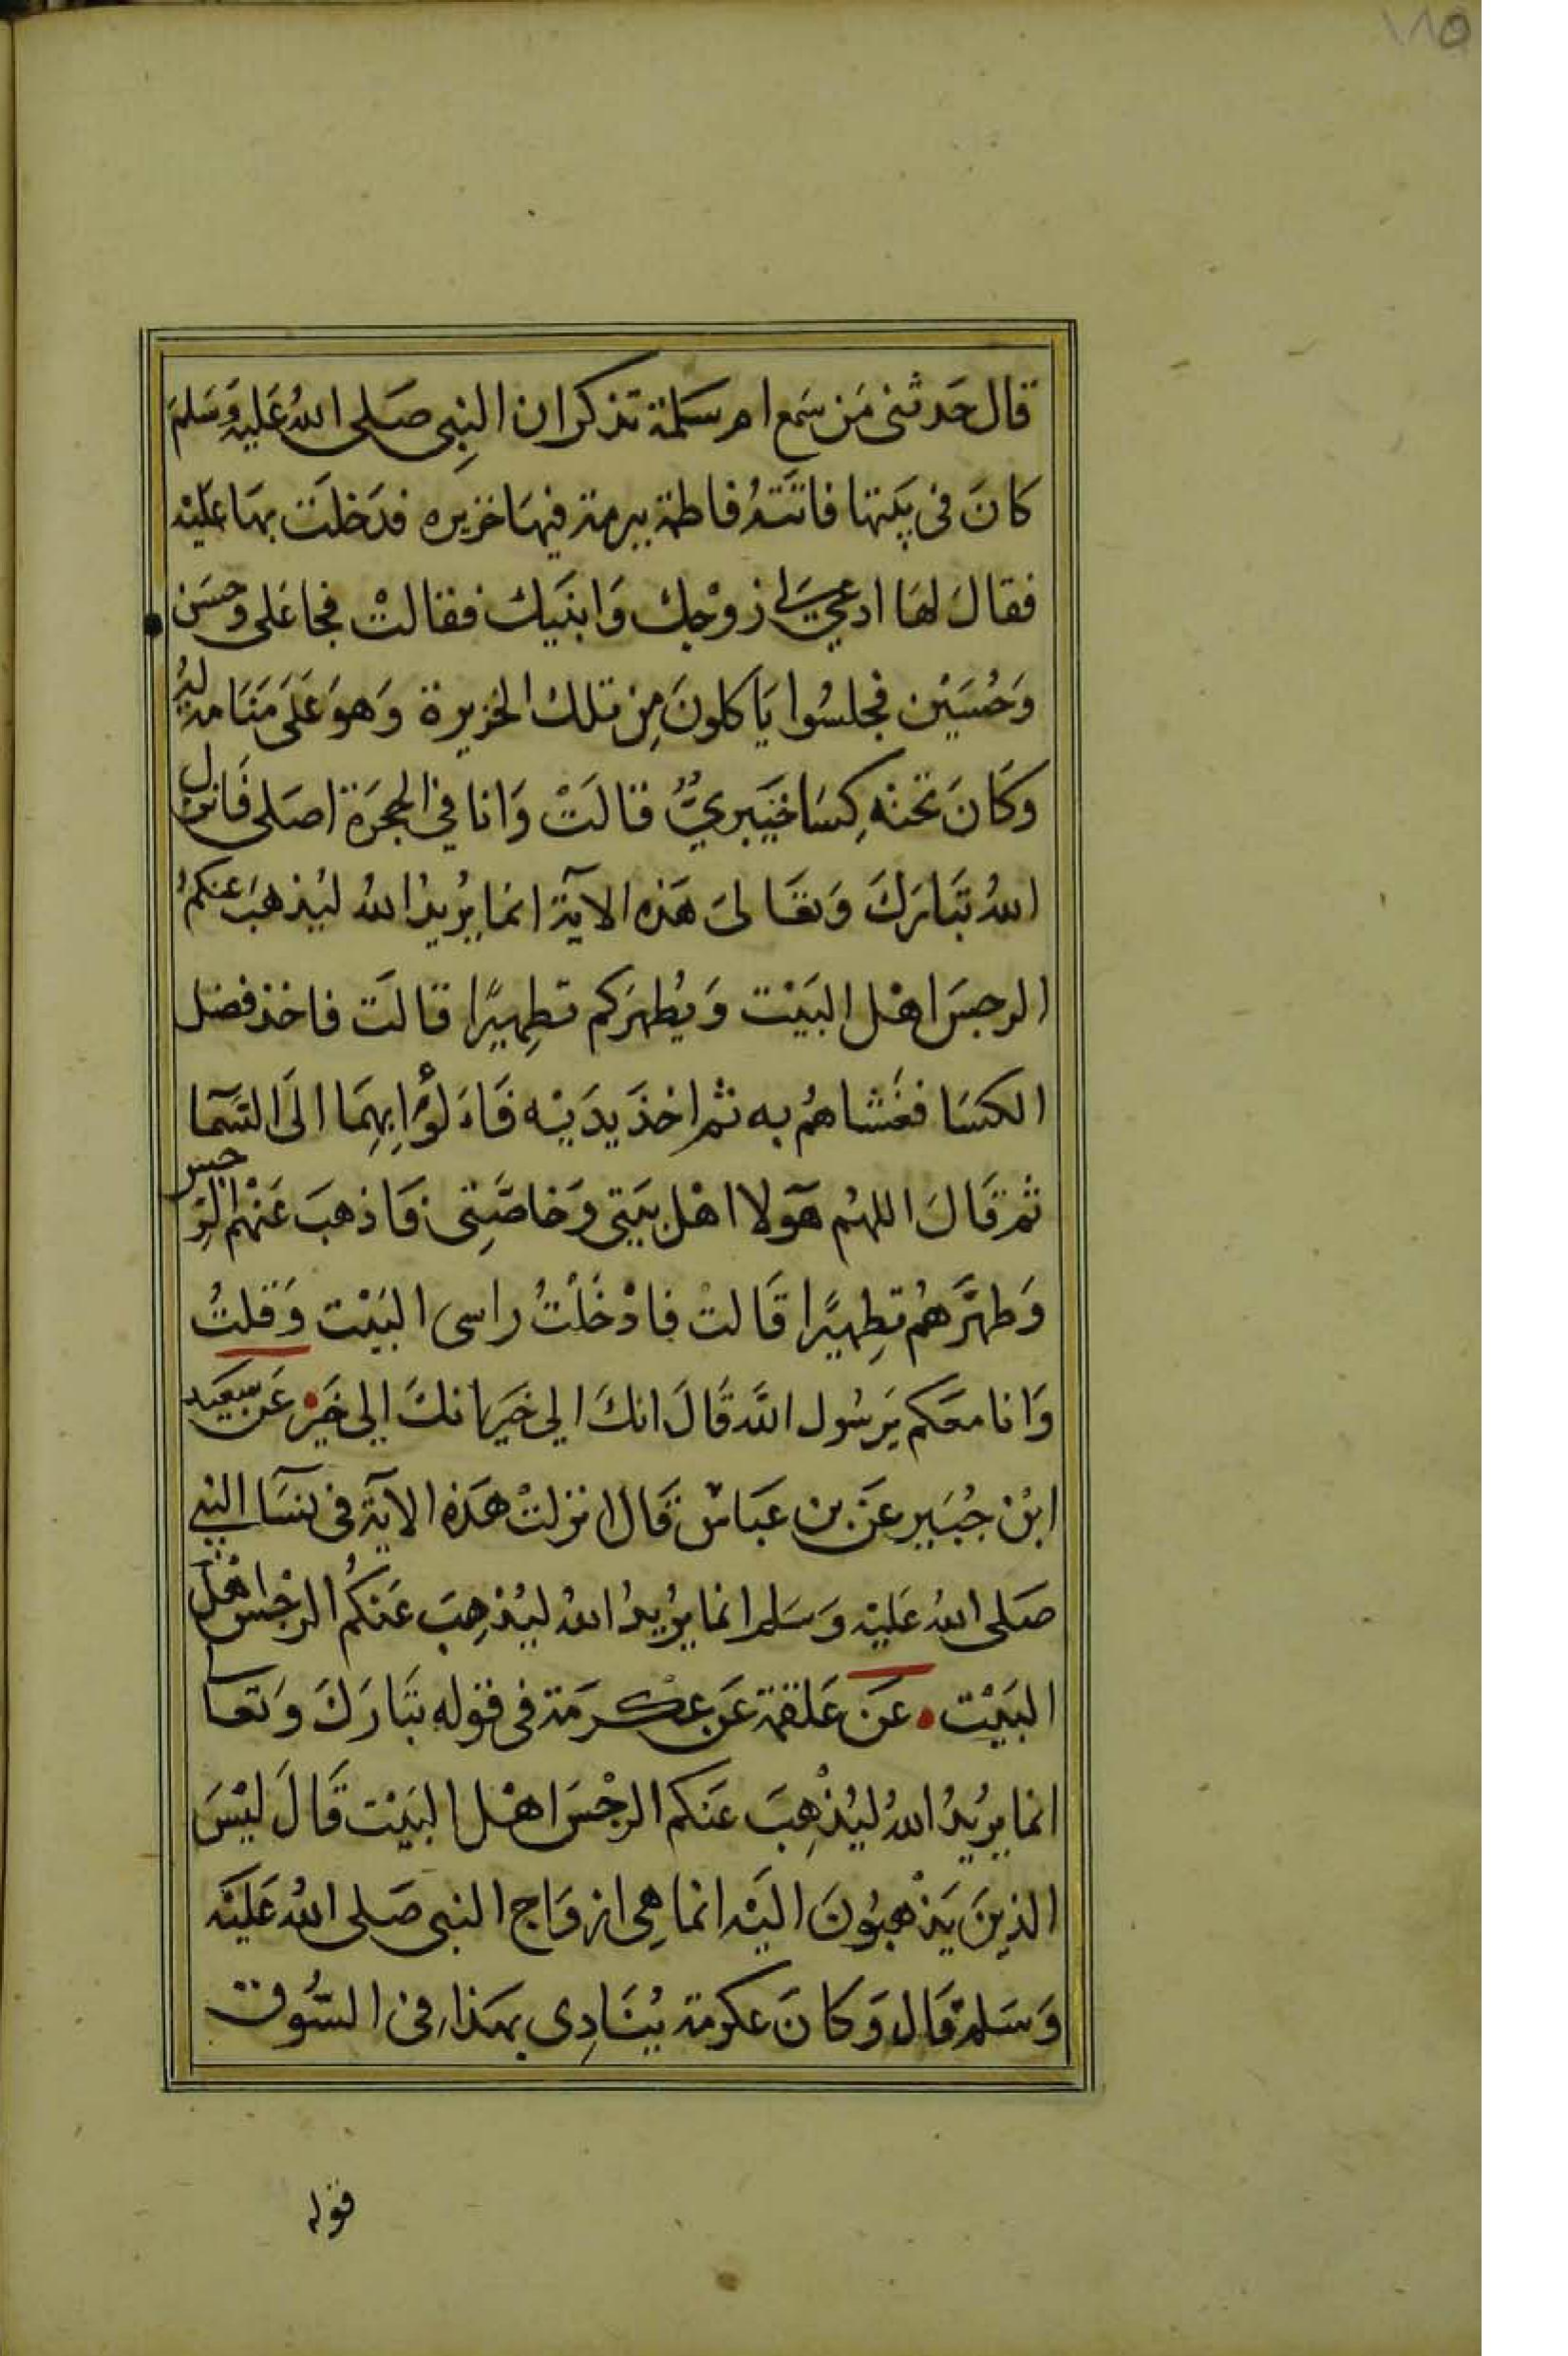 ١٨٥
قال حَدثنى مَن سَمع ام سَلمة تذكر ان النبِى صَلى اللهُ عَليهِ وَسَلمَ
كانَ فى بَيتها فاتَتهُ فاطمة ببرمة فيهَا خزيره فدَخلَت بهَا عَليْه
فقالَ لهَا ادعي لي زوْجك وَابنَيك فقالتْ فجا عَلى وحسَن
وَحُسَيْن فجلسُوا يَاكلونَ مِن تلك الخزيرة وَهوَ عَلَى مَنَامة لهُ
وكَانَ تحْتهُ كِسَا خيَبريٌّ قالَتْ وَانا في الحجرَة اصَلى فَانزل
اللهُ تَبَارَكَ وَتعَالىَ هَذه الآية انمَا يُريدُ اللهُ ليُذهبَ عنكمُ
الرجسَ اهْل البَيْت وَيُطهرَكم تطِهيرًا قالَت فاخذ فضل
الكسَا فغَشاهُم به ثم اخذَ يدَيْه فَاَلْوَا بِهمَا الَى السَّمآ
ثم قَالَ اللهُم هَولا اهْل بَيتي وَخاصَّتِى فَاذهبَ عَنْهم الرِّجس
وَطهَّرهُم تطِهيرًا قَالتْ فادْخَلْتُ راسى البَيْت وَقلتُ
وَانا معَكم يَرسُول اللَّه قَالَ انكَ الي خَير انكَ الي خَيْر عَن سَعيد
ابْن جُبَير عَن بن عَباسْ قَال انزلتْ هَذه الآية فى نسَآ النبي
صَلى اللهُ عَليْه وَسَلم انمَا يرُيدُ اللهُ ليُذهِبَ عَنكُم الرجْسَ اهْل
البَيْت عَن عَلقمة عَن عكرمَة فى قوله تبَارَكَ وَتعا
انمَا يرُيدُ اللهُ ليُذْهِبَ عَنكم الرجْسَ اهْل البَيْت قَالَ ليْسَ
الذينَ يَذْهبُونَ اليَه انمَا هِى ازوَاج النبى صَلى اللهُ عَليَه
وَسَلم قَال وَكانَ عكرمَة يُنَادِى بهَذا فى السُّوق
قوله